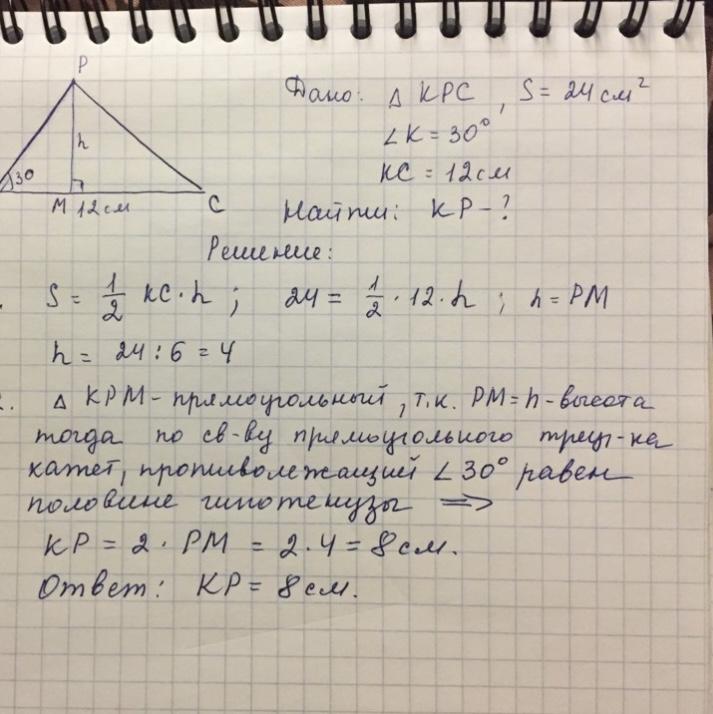 P
h
30
M 12см C
Дано: Δ KPC, S = 24 см²
∠K = 30°
KC = 12 см
Найти: KP - ?
Решение:
. S = 1/2 KC · h ; 24 = 1/2 · 12 · h ; h = PM
h = 24 : 6 = 4
. Δ KPM - прямоугольный, т.к. PM = h - высота
тогда по св-ву прямоугольного треуг-ка
катет, противолежащий ∠30° равен
половине гипотенузы ⟹
KP = 2 · PM = 2 · 4 = 8 см.
Ответ: KP = 8 см.